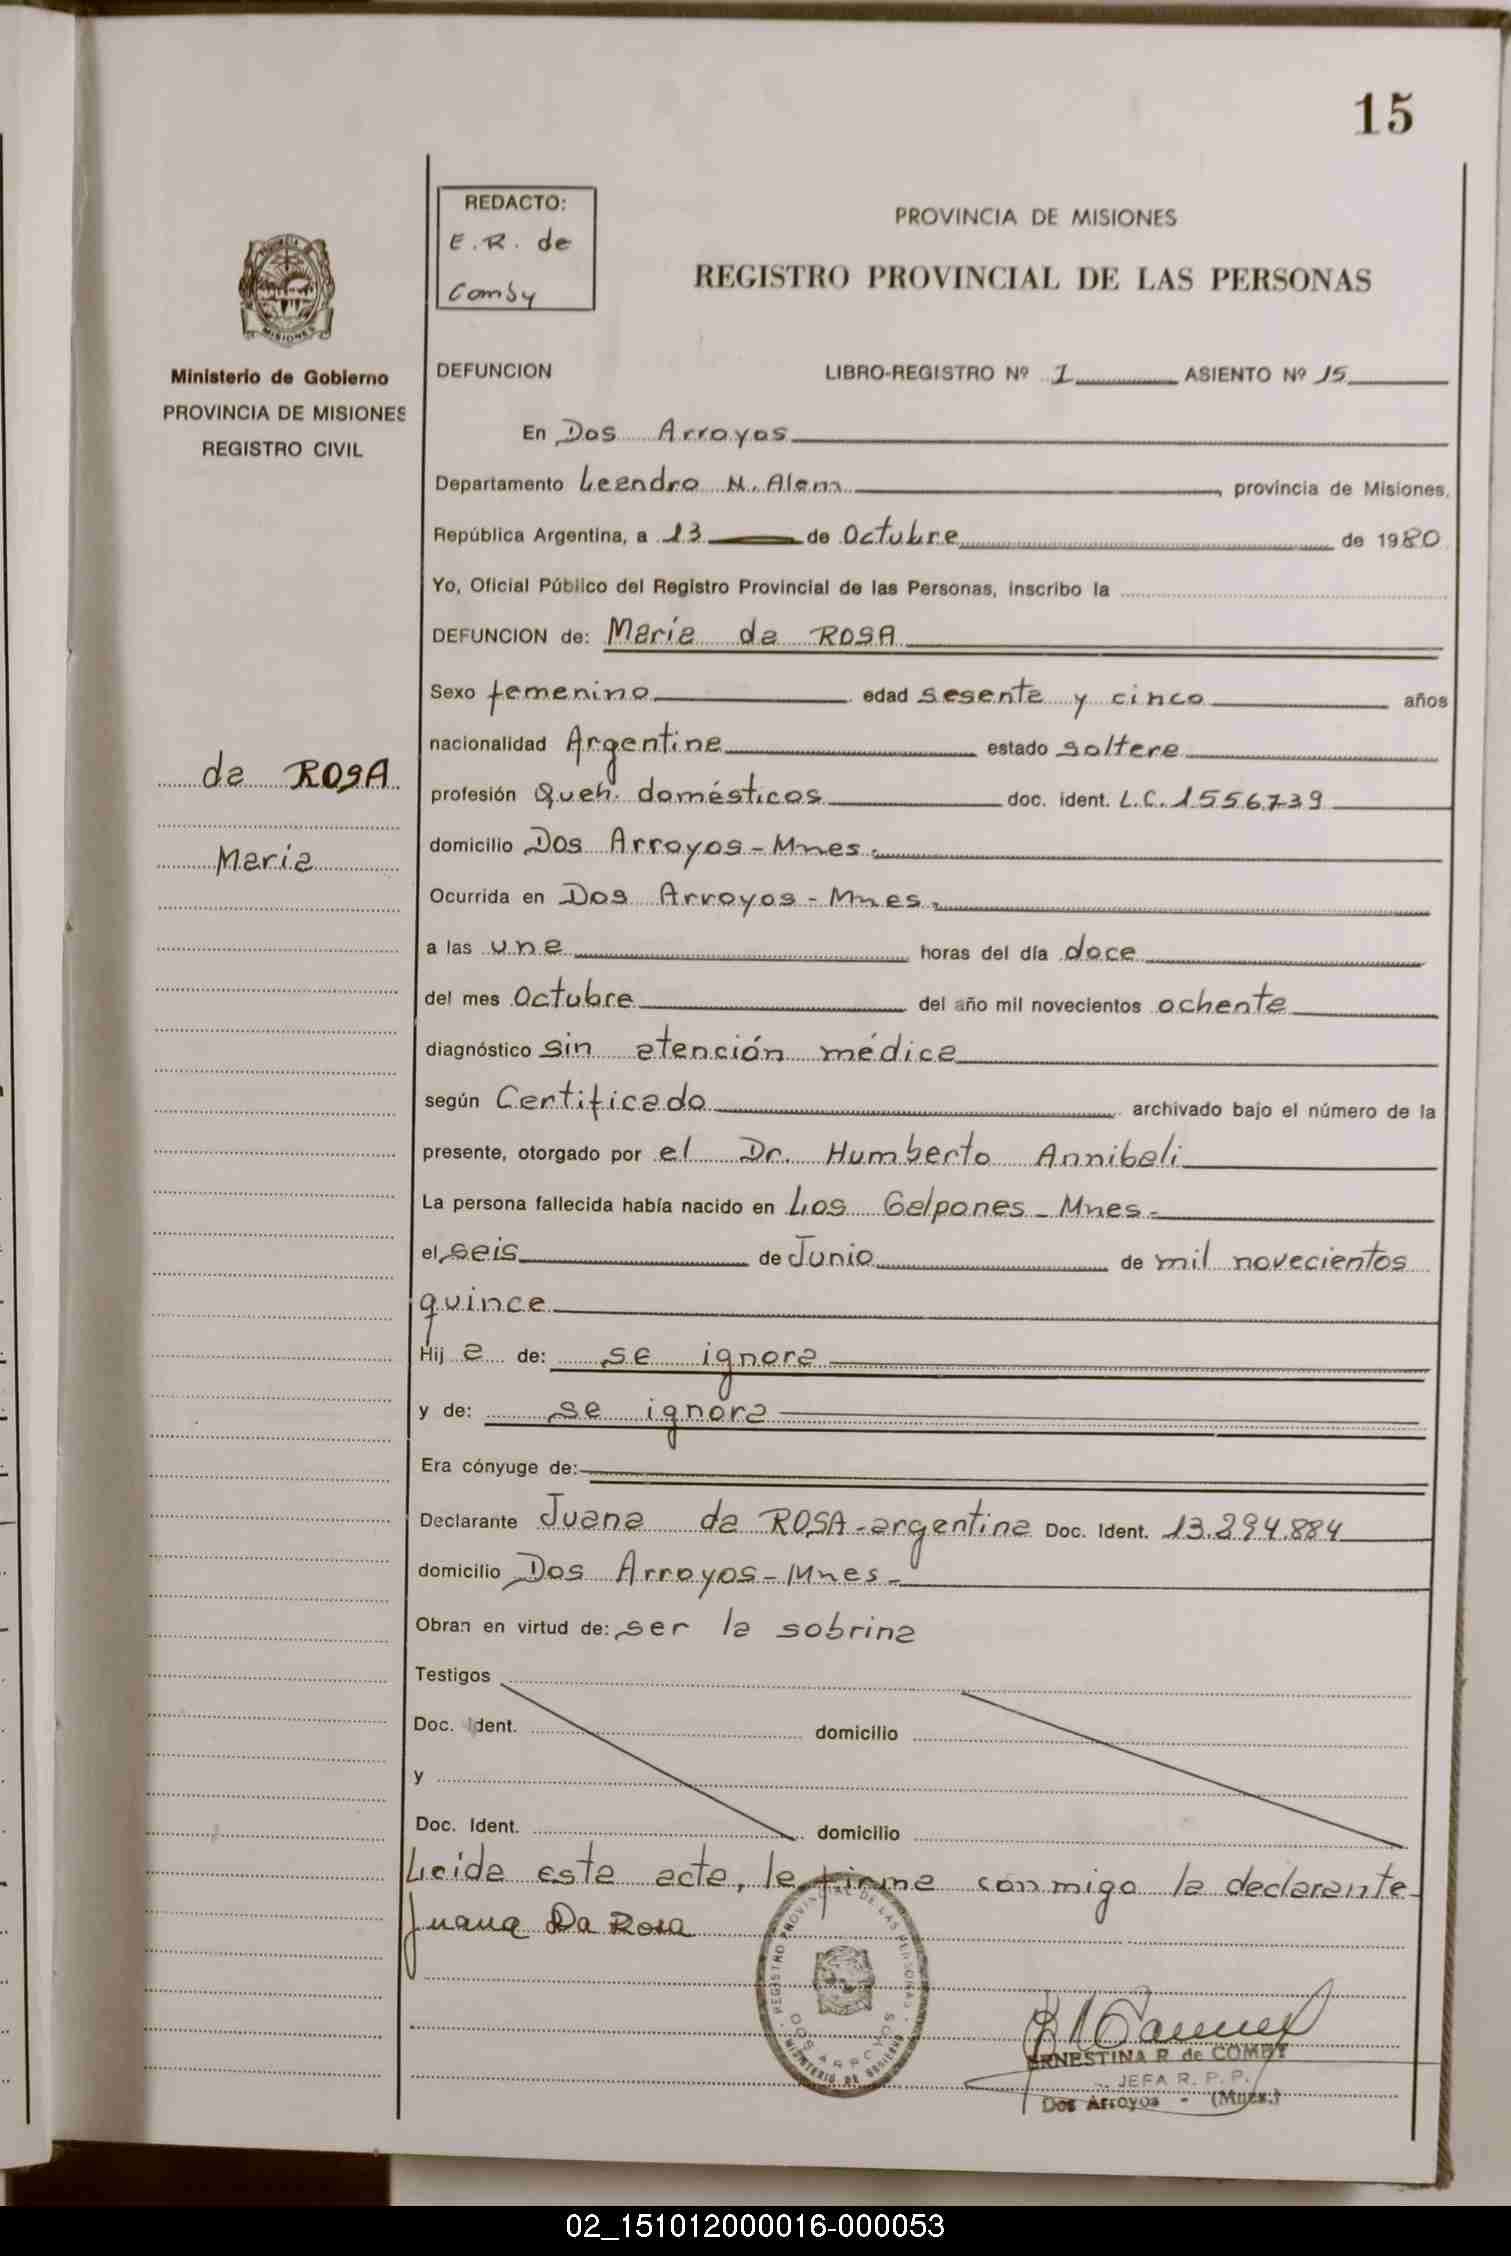 15
REDACTO:
E. R. de
Comby
PROVINCIA DE MISIONES
REGISTRO PROVINCIAL DE LAS PERSONAS
MISIONES
Ministerio de Gobierno
PROVINCIA DE MISIONES
REGISTRO CIVIL
DEFUNCION LIBRO-REGISTRO Nº 1 ASIENTO Nº 15
En Dos Arroyos
Departamento Leandro N. Alem, provincia de Misiones,
República Argentina, a 13 de Octubre de 1980
Yo, Oficial Público del Registro Provincial de las Personas, inscribo la
DEFUNCION de: María da ROSA
Sexo femenino edad sesenta y cinco años
nacionalidad Argentina estado soltera
da ROSA
María
profesión Queh. domésticos doc. ident. L.C. 1556739
domicilio Dos Arroyos - Mnes.
Ocurrida en Dos Arroyos - Mnes.
a las una horas del día doce
del mes Octubre del año mil novecientos ochenta
diagnóstico sin atención médica
según Certificado archivado bajo el número de la
presente, otorgado por el Dr. Humberto Annibali
La persona fallecida había nacido en Los Galpones - Mnes -
el seis de Junio de mil novecientos
quince
Hij a de: se ignora
y de: se ignora
Era cónyuge de:
Declarante Juana da ROSA - argentina Doc. Ident. 13.294.884
domicilio Dos Arroyos - Mnes -
Obran en virtud de: ser la sobrina
Testigos
Doc. Ident. domicilio
y
Doc. Ident. domicilio
Leída esta acta, la firma conmigo la declarante -
Juana Da Rosa
REGISTRO PROVINCIAL DE LAS PERSONAS
DOS ARROYOS
MINISTERIO DE GOBIERNO
ERNESTINA R. de COMBY
JEFA R. P. P.
Dos Arroyos - (Mnes.)
02_151012000016-000053